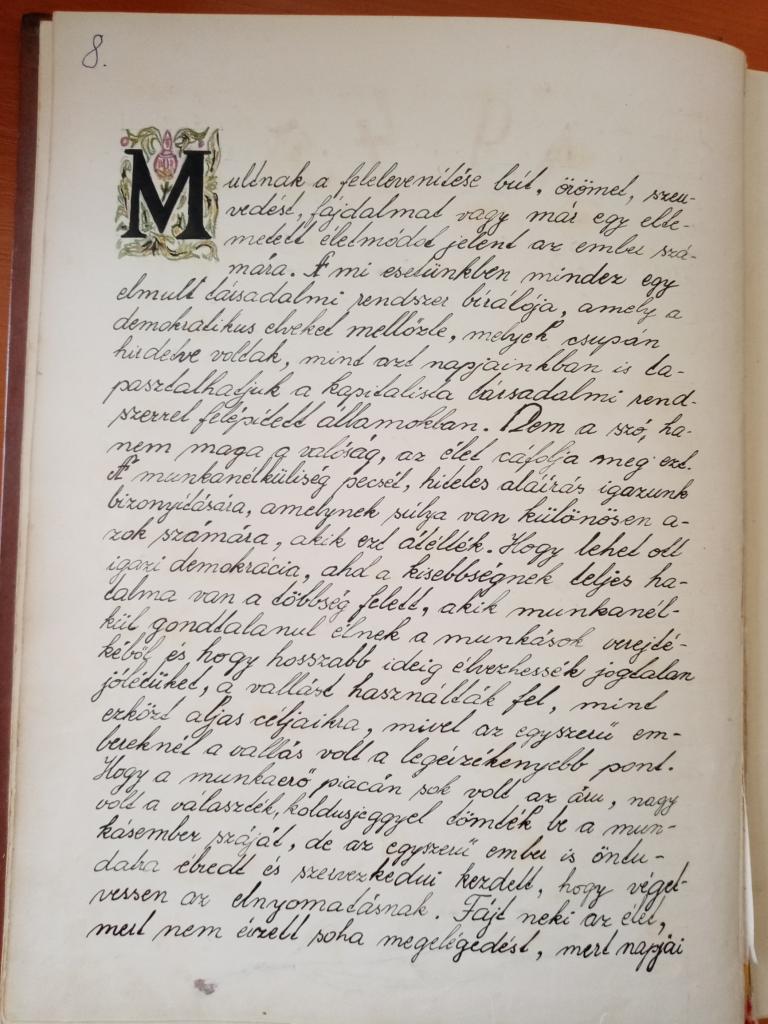 8.
Multnak a felelevenitése bút, örömet, szen-
vedést, fájdalmat vagy már egy elte-
metett életmódot jelent az ember szá-
mára. A mi esetünkben mindez egy
elmult társadalmi rendszer bírálója, amely a
demokratikus elveket mellőzte, melyek csupán
hirdetve voltak, mint azt napjainkban is ta-
pasztalhatjuk a kapitalista társadalmi rend-
szerrel felépített államokban. Nem a szó, ha-
nem maga a valóság, az élet cáfolja meg ezt.
A munkanélküliség pecsét, hiteles aláírás igazunk
bizonyítására, amelynek súlya van különösen a-
zok számára, akik ezt átélték. Hogy lehet ott
igazi demokrácia, ahol a kisebbségnek teljes ha-
talma van a többség felett, akik munkanél-
kül gondtalanul élnek a munkások verejté-
kéből és hogy hosszabb ideig élvezhessék jogtalan
jólétüket, a vallást használták fel, mint
eszközt aljas céljaikra, mivel az egyszerű em-
bereknél a vallás volt a legérzékenyebb pont.
Hogy a munkaerő piacán sok volt az áru, nagy
volt a választék, koldusjeggyel tömték be a mun-
kásember száját, de az egyszerű ember is öntu-
datra ébredt és szervezkedni kezdett, hogy véget
vessen az elnyomatásnak. Fájt neki az élet,
mert nem érzett soha megelégedést, mert napjai